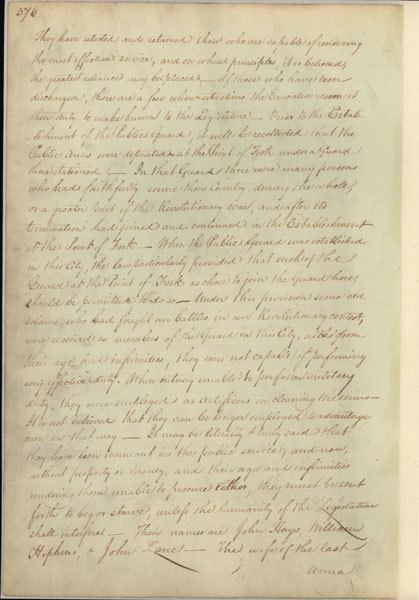 376
they have selected and retained those who are capable of rendering
the most effective service, and on whose principles it is believed,
the greatest reliance may be placed — Of those who have been
discharged, there are a few whose situations the Executive deem it
their duty to make known to the Legislature — Prior to the Estab-
lishment of the Public Guard, it will be recollected that the
Public Arms were deposited at the Point of Fork under a Guard
there stationed — In that Guard there were many persons
who had faithfully served their Country during the whole,
or a greater part of the Revolutionary War, and after its
termination had joined and continued in the Establishment
at the Point of Fork — When the Public Guard was established
in this City, the law particularly provided that such of the
Guard at the Point of Fork as chose to join the Guard here,
should be permitted to do so — Under this provision some old
soldiers who had fought our battles in our Revolutionary contest,
were received as members of the Guard in this City, altho' from
their age and infirmities, they were not capable of performing
very effective duty. When entirely unable to perform military
duty, they were employed as Artificers in cleaning the arms —
It is not believed that they can be longer employed to advantage
even in that way — It may be literally & truly said that
they have been worn out in the public service; and now,
without property or money, and their age and infirmities
rendering them unable to procure either, they must be sent
forth to beg or starve, unless the humanity of the Legislature
shall interfere — Their names are John Hays, William
Hephens, & John Lane — The wife of the last
Anna